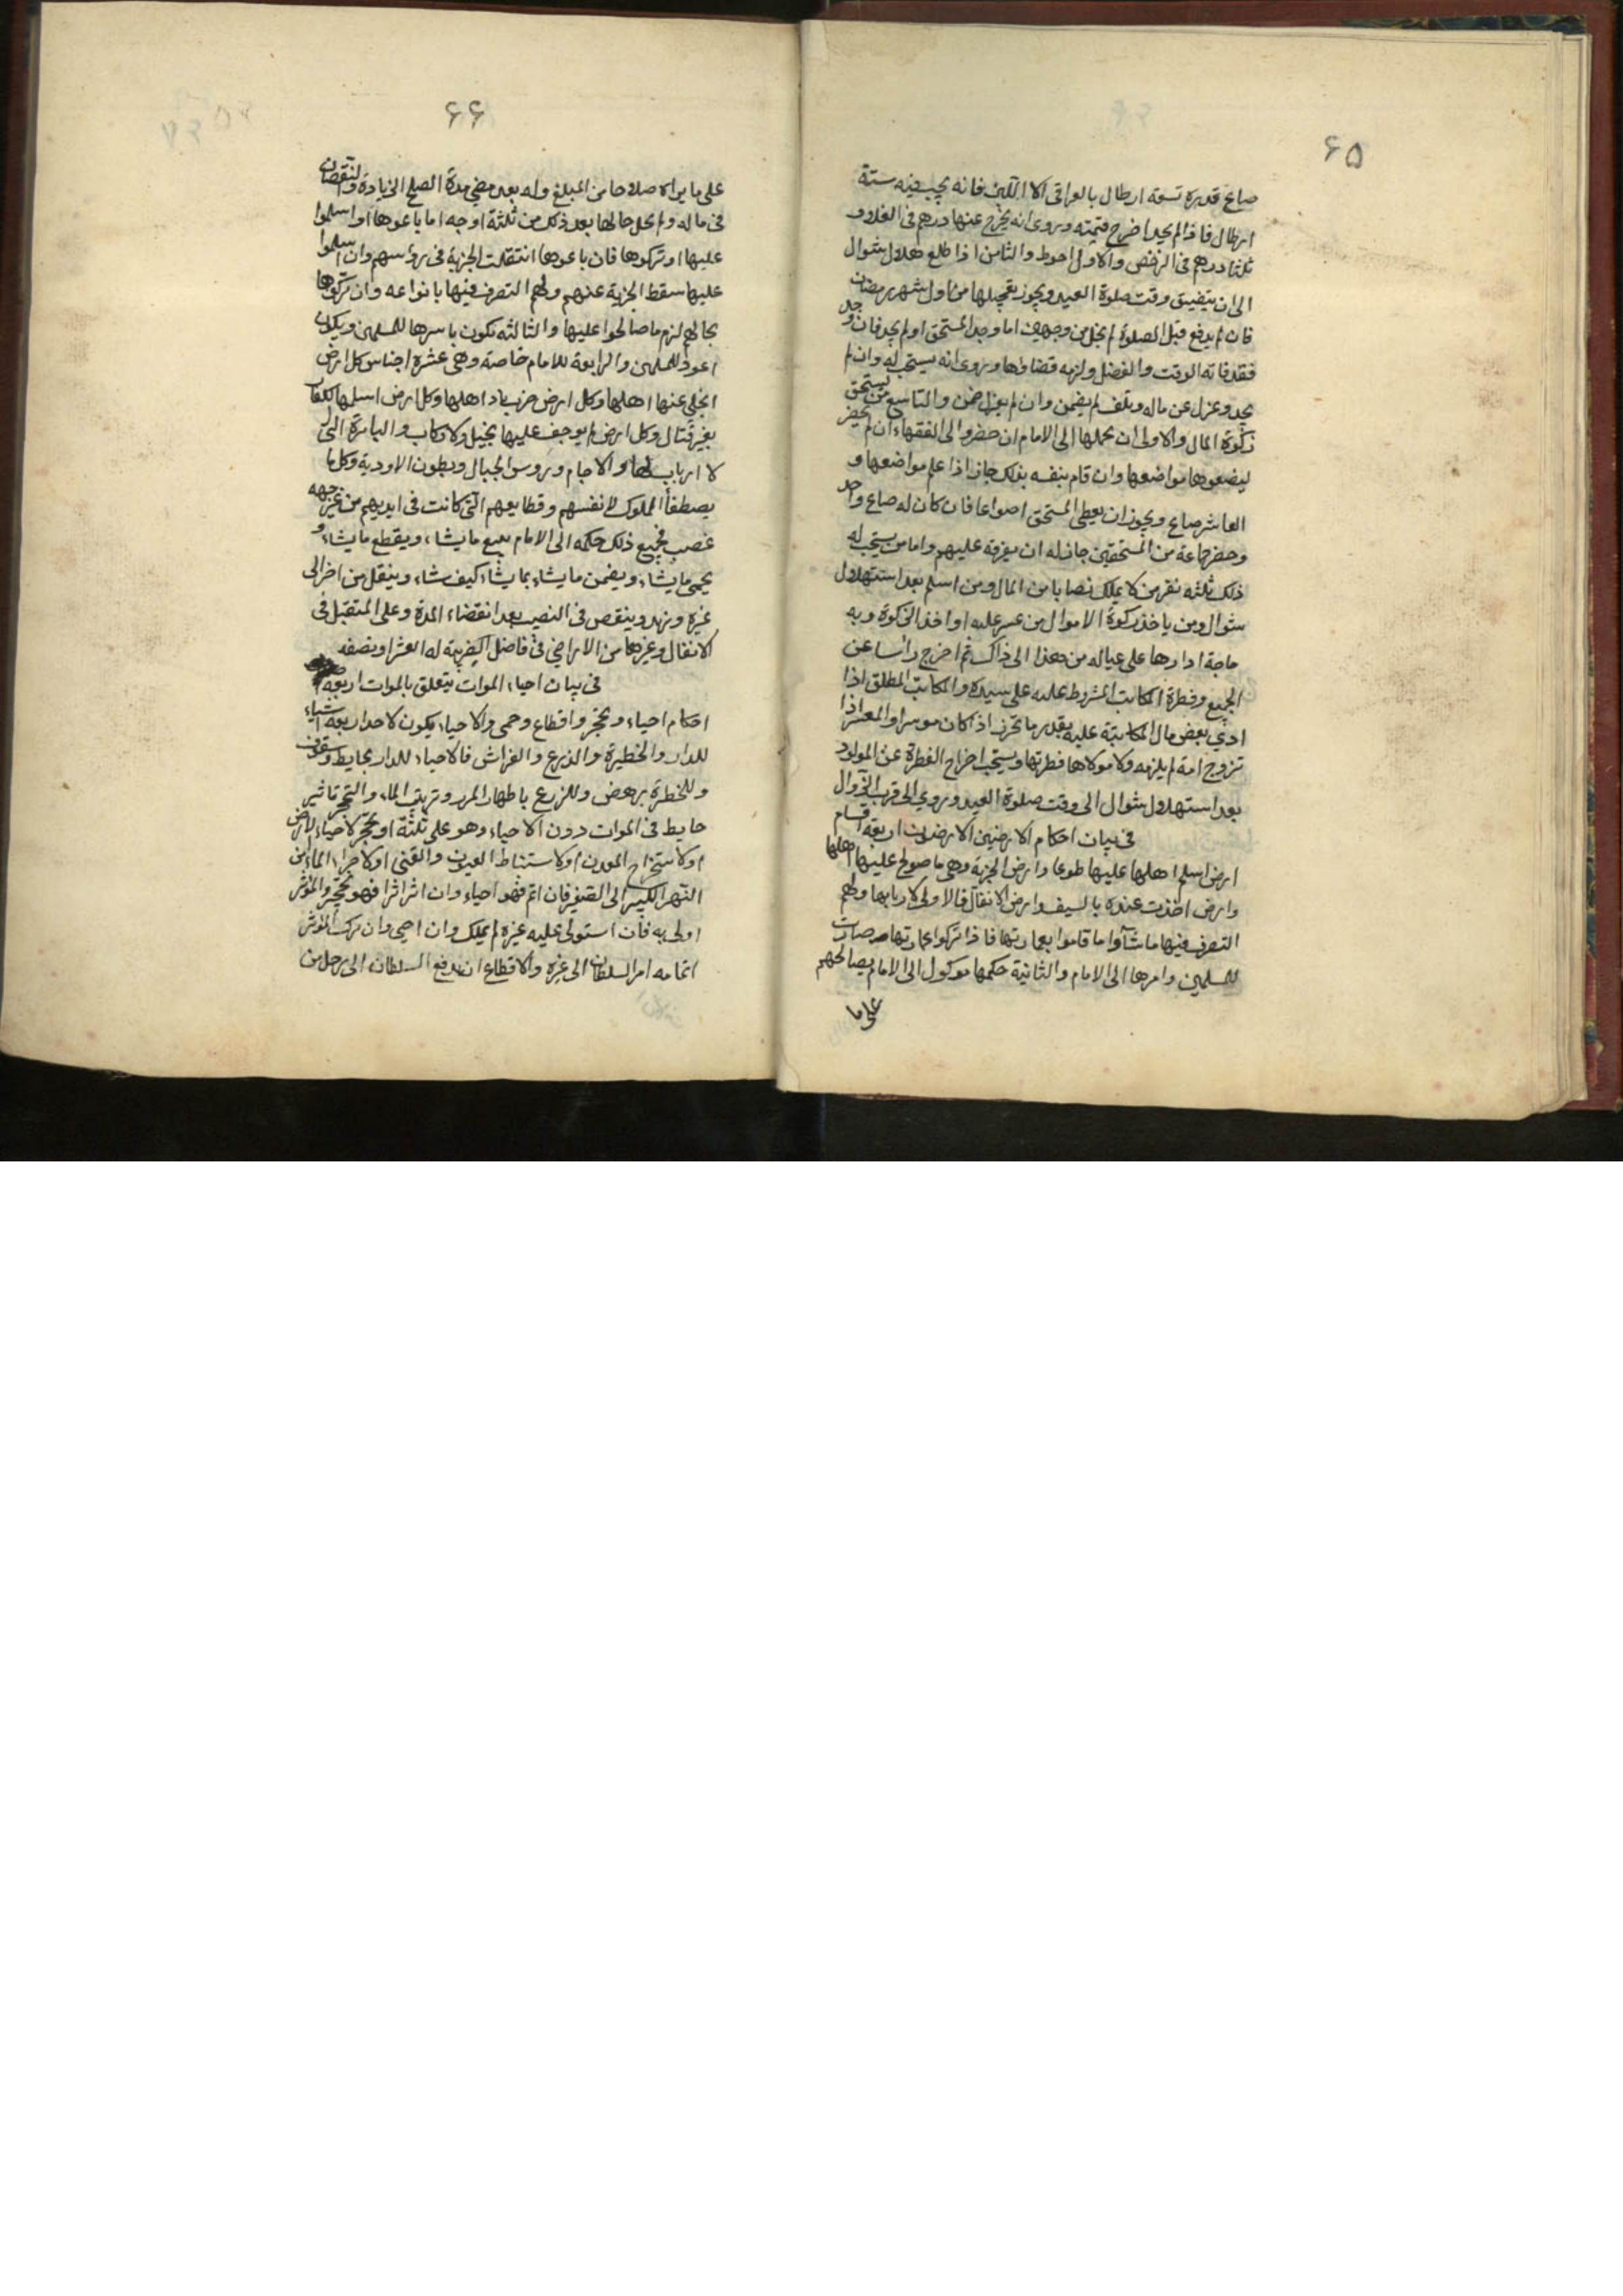 ۶۵
صاع قدره تسعة ارطال بالعراقی الا اللبن فانه یجب فیه ستة
ارطال فاذا لم یجد اخرج قیمته وروی انه یخرج عنها درهم فی الغلاء و
ثلثا درهم فی الرخص والاول احوط والثامن اذا طلع هلال شوال
الی ان یتضیق وقت صلوة العید ویجوز تعجیلها من اول شهر رمضان
فان لم یدفع قبل الصلوة لم یخل من وجهین اما وجد المستحق او لم یجد فان وجد
فقد فاته الوقت والفضل ولزمه قضاؤها وروی انه یستحب له وان لم
یجد وعزل عن ماله وتلف لم یضمن وان لم یعزل ضمن والتاسع من یستحق
زکوة المال والاولی ان یحملها الی الامام ان حضر والی الفقهاء ان لم یحضر
لیضعوها مواضعها وان قام بنفسه بذلک جاز اذا علم مواضعها و
العاشر صاع ویجوز ان یعطی المستحق اصواعا فان کان له صاع واحد
وحضر جماعة من المستحقین جاز له ان یفرقه علیهم واما من یستحب له
ذلک ثلثه نفر من لا یملک نصابا من المال ومن اسلم بعد استهلال
شوال ومن یاخذ زکوة الاموال من عسر علیه او اخذ الزکوة وبه
حاجة ادارها علی عیاله من هذا الی ذاک ثم اخرج راسا عن
الجمیع وفطرة المکاتب المشروط علیه علی سیده والمکاتب المطلق اذا
ادی بعض مال المکاتبة علیه بقدر ما تحرر اذا کان موسرا والمعسر اذا
تزوج امة لم یلزمه ولا مولاها فطرتها ویستحب اخراج الفطرة عن المولود
بعد استهلال شوال الی وقت صلوة العید وروی الی قرب الزوال
فی بیان احکام الارضین الارضون اربعة اقسام
ارض اسلم اهلها علیها طوعا وارض الجزیة وهی ما صولح علیها اهلها
وارض اخذت عنوه بالسیف وارض الانفال فالاولی لاربابها ولهم
التصرف فیها ما شآوا ما قاموا بعمارتها فاذا ترکوا عمارتها صارت
للمسلمین وامرها الی الامام والثانیة حکمها موکول الی الامام یصالحهم
علی ما
۶۶
علی ما یراه صلاحا من المبلغ وله بعد مضی مدة الصلح الزیادة والنقصان
فی ماله ولم یخل حالها بعد ذلک من ثلثة اوجه اما باعوها او اسلموا
علیها او ترکوها فان باعوها انتقلت الجزیة فی رؤسهم وان اسلموا
علیها سقط الجزیة عنهم ولهم التصرف فیها بانواعه وان ترکوها
بحالهم لزم ما صالحوا علیها والثالثه تکون باسرها للمسلمین ویکون
اعود للمسلمین والرابعة للامام خاصة وهی عشرة اجناس کل ارض
انجلی عنها اهلها وکل ارض خرب باد اهلها وکل ارض اسلمها الکفار
بغیر قتال وکل ارض لم یوجف علیها بخیل ولا رکاب والبائرة التی
لا ارباب لها والاجام ورؤس الجبال وبطون الاودیة وکل ما
یصطفا الملوک لانفسهم وقطایعهم التی کانت فی ایدیهم من غیر جهه
غصب فجمیع ذلک حکمه الی الامام یبیع ما یشاء ویقطع ما یشاء و
یحمی ما یشاء ویضمن ما یشاء بما یشاء کیف شاء وینقل من اخر الی
غیره ویزید وینقص فی النصیب بعد انقضاء المدة وعلی المتقبل فی
الانفال وغیرها من الاراضی فی فاضل الضریبة له العشر او نصفه
فی بیان احیاء الموات یتعلق بالموات اربعة
احکام احیاء وتحجر واقطاع وحمی والاحیاء یکون لاحد اربعة اشیاء
للدار والحظیرة والزرع والغراس فالاحیاء للدار بحایط وسقف
وللحظرة بحایط وللزرع باظهار المرز وترتیب الماء والتحجر تاثیر
حایط فی الموات دون الاحیاء وهو علی ثلثة او یحجر لاحیاء الارض
او لاستخراج المعدن او لاستنباط العیون والقنی او لاجراء الماء من
النهر الکبیر الی الصغیر فان اتم فهو احیاء وان اثر اثرا فهو تحجر والمؤثر
اولی به فان استولی علیه غیره لم یملک وان احیی وان ترک المؤثر
اتمامه امر السلطان الی غیره والاقطاع ان یدفع السلطان الی رجل من